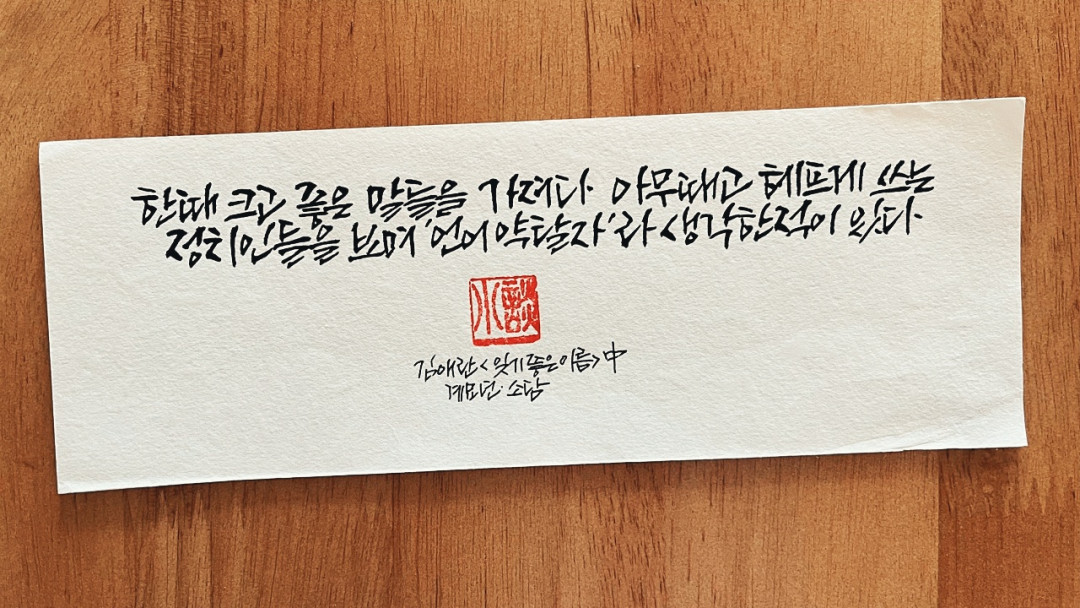 한때 크고 좋은 말들을 가져다 아무때고 헤프게 쓰는
정치인들을 보며, '언어 약탈자'라 생각한 적이 있다.
小談
김애란 <잊기 좋은 이름> 中
계묘년. 소담